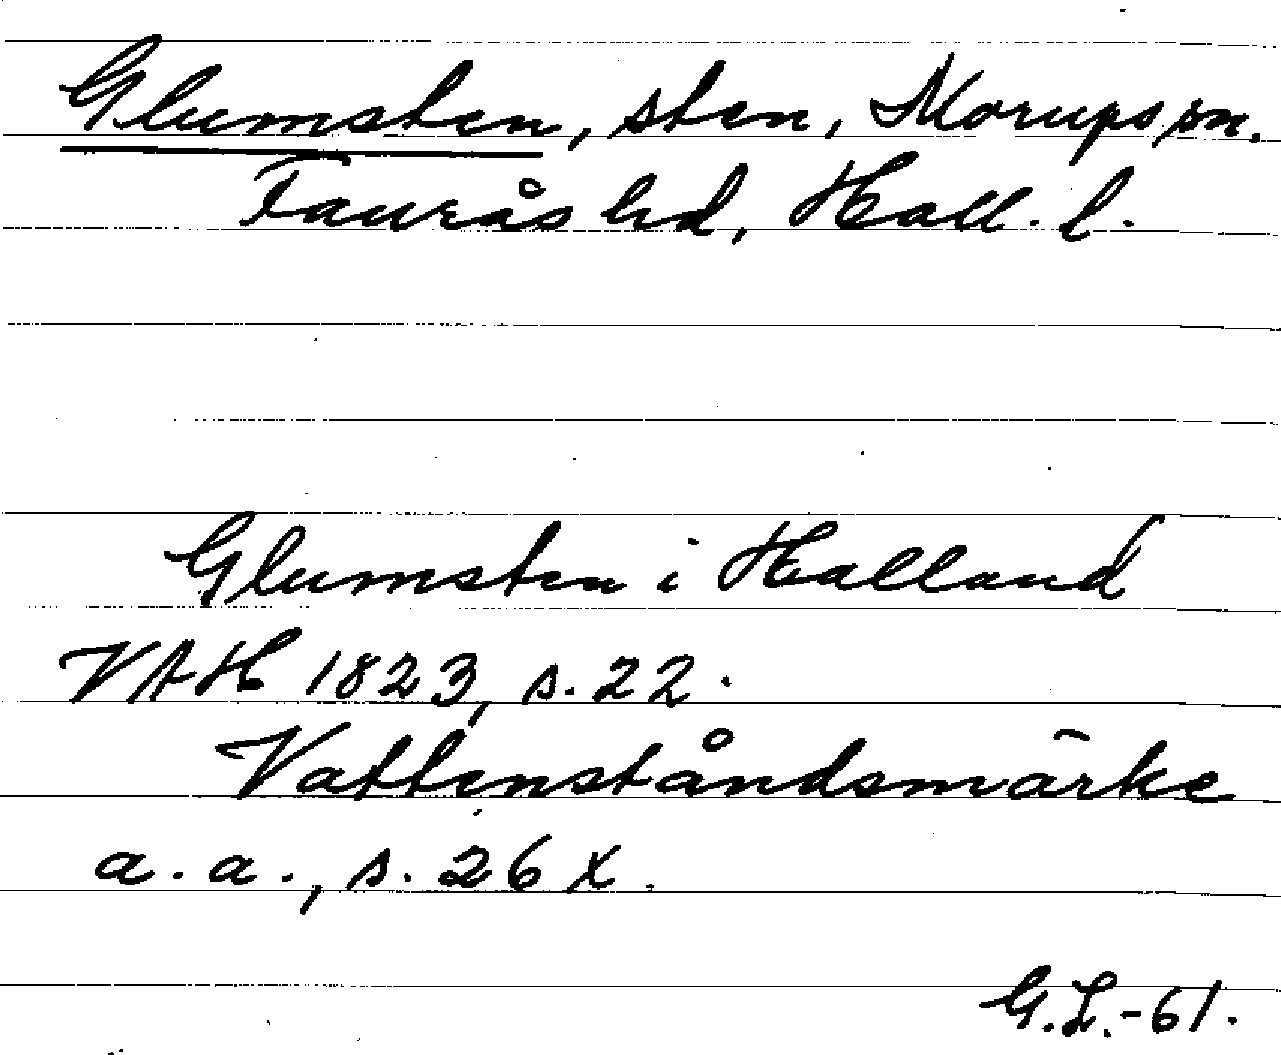 Glumsten, sten, Morups sn.
Faurås hd, Hall. l.
Glumsten i Halland
VAH 1823, s. 22.
Vattenståndsmärke
a. a., s. 26 x.
G.L.-61.